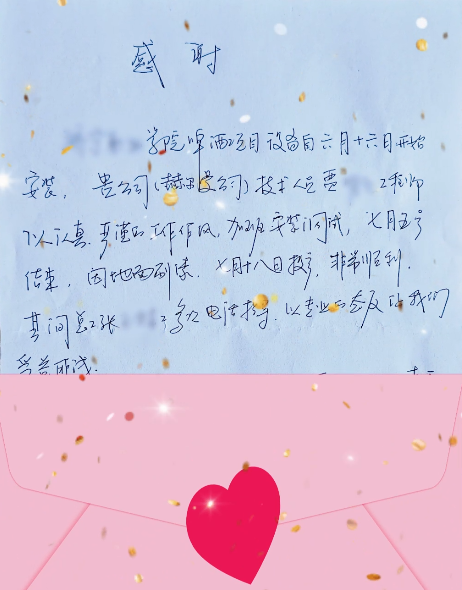 感谢
学院啤酒项目设备自六月十六日开始
安装，贵公司(赫尔曼公司)技术人员贾 工程师
以认真、严谨的工作作风，加班安装调试，七月五号
结束，因地面刷漆，七月十八日投产，非常顺利．
其间总工张 多次电话指导，以专业的态度让我们
受益匪浅．